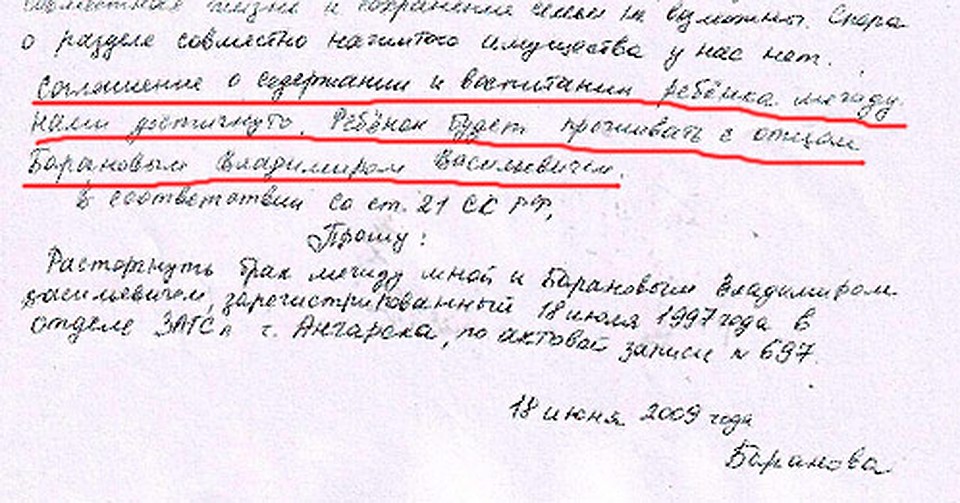 совместная жизнь и сохранение семьи не возможны. Спора
о разделе совместно нажитого имущества у нас нет.
Соглашение о содержании и воспитании ребёнка между
нами достигнуто. Ребёнок будет проживать с отцом
Барановым Владимиром Васильевичем.
В соответствии со ст. 21 СК РФ,
Прошу:
Расторгнуть брак между мной и Барановым Владимиром
Васильевичем, зарегистрированный 18 июля 1997 года в
отделе ЗАГСа г. Ангарска, по актовой записи № 697.
18 июня 2009 года
Баранова